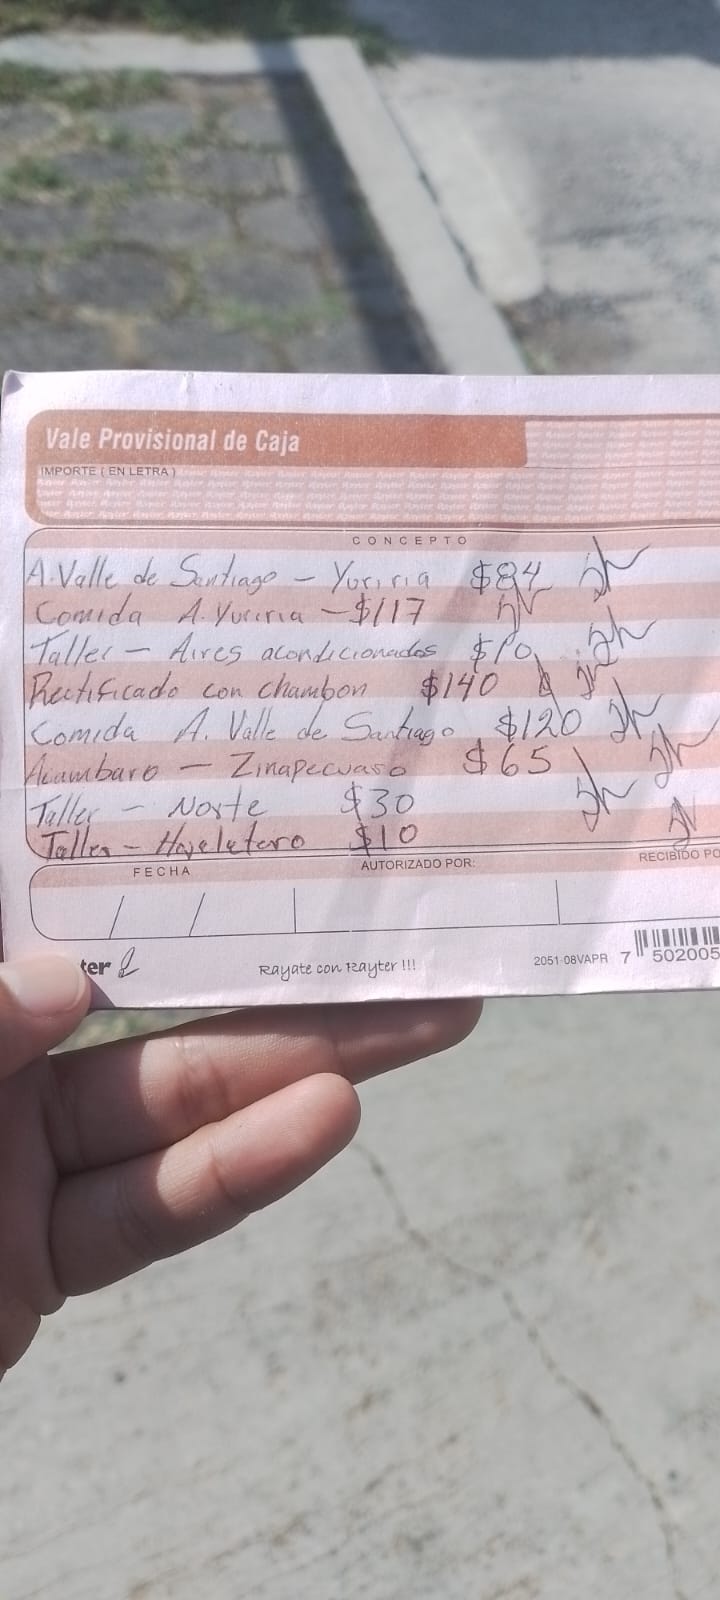 Vale Provisional de Caja
IMPORTE ( EN LETRA )
CONCEPTO
A. Valle de Santiago - Yuriria $84
Comida A. Yuriria - $117
Taller - Aires acondicionados $10
Rectificado con chambon $140
Comida A. Valle de Santiago $120
Acambaro - Zinapecuaro $65
Taller - Norte $30
Taller - Hojeletero $10
FECHA AUTORIZADO POR: RECIBIDO PO
/ /
ter Rayate con Rayter !!! 2051-08VAPR 7 502005